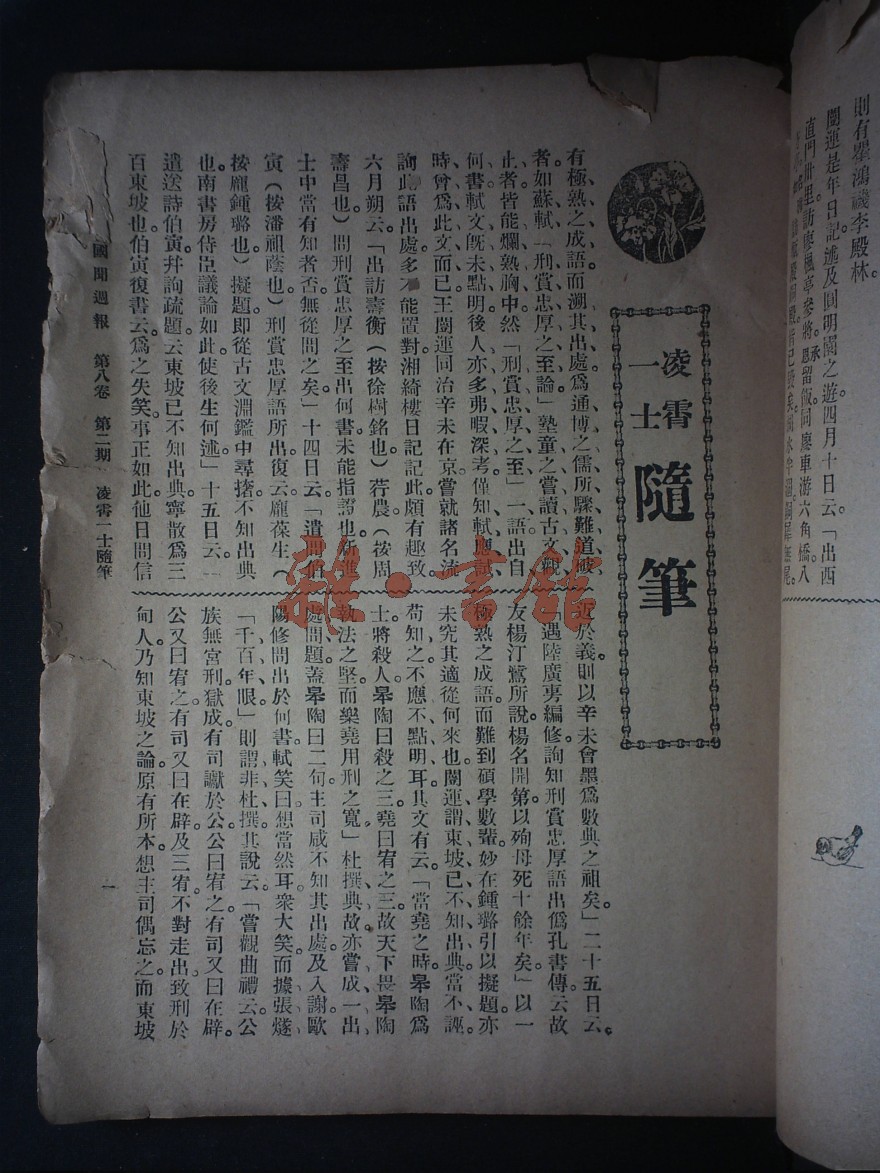 則有瞿鴻禨李殿林。
闓運是年日記述及圓明園之遊四月十日云「出西
直門卅里訪廖楓亭參將。承恩留飯同廖車游六角橋八
凌霄
一士
隨筆
有極熟之成語而溯其出處爲通博之儒所驟難道破
者如蘇軾「刑賞忠厚之至論」塾童之嘗讀古文觀
止者皆能爛熟胸中然「刑賞忠厚之至」一語出自
何書軾文旣未點明後人亦多弗暇深考僅知軾應試
時曾爲此文而已王闓運同治辛未在京嘗就諸名流
詢此語出處多不能置對湘綺樓日記記此頗有趣致
六月朔云「出訪壽衡(按徐樹銘也)荇農(按周
壽昌也)問刑賞忠厚之至出何書未能指證也新進
士中當有知者否無從問之矣」十四日云「遣問伯
寅(按潘祖蔭也)刑賞忠厚語所出復云龐葆生(
按龐鍾璐也)擬題即從古文淵鑑中尋撦不知出典
也南書房侍臣議論如此使後生何述」十五日云「
遣送詩伯寅并詢疏題云東坡已不知出典寧散爲三
百東坡也伯寅復書云爲之失笑事正如此他日問信
近於義則以辛未會墨爲數典之祖矣」二十五日云
「遇陸廣旉編修詢知刑賞忠厚語出僞孔書傳云故
友楊汀鷺所說楊名開第以殉母死十餘年矣」以一
極熟之成語而難到碩學數輩妙在鍾璐引以擬題亦
未究其適從何來也闓運謂東坡已不知出典當不誣
苟知之不應不點明耳其文有云「當堯之時皋陶爲
士將殺人皋陶曰殺之三堯曰宥之三故天下畏皋陶
執法之堅而樂堯用刑之寬」杜撰典故亦嘗成一出
處問題蓋皋陶曰二句主司咸不知其出處及入謝歐
陽修問出於何書軾笑曰想當然耳衆大笑而據張燧
「千百年眼」則謂非杜撰其說云「嘗觀曲禮云公
族無宮刑獄成有司讞於公公曰宥之有司又曰在辟
公又曰宥之有司又曰在辟及三宥不對走出致刑於
甸人乃知東坡之論原有所本想主司偶忘之而東坡
國聞週報 第八卷 第二期 凌霄一士隨筆
一
雜·書館